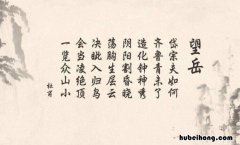 望岳
岱宗夫如何
齐鲁青未了
造化钟神秀
阴阳割昏晓
荡胸生层云
决眦入归鸟
会当凌绝顶
一览众山小
杜甫
hubeihong.com